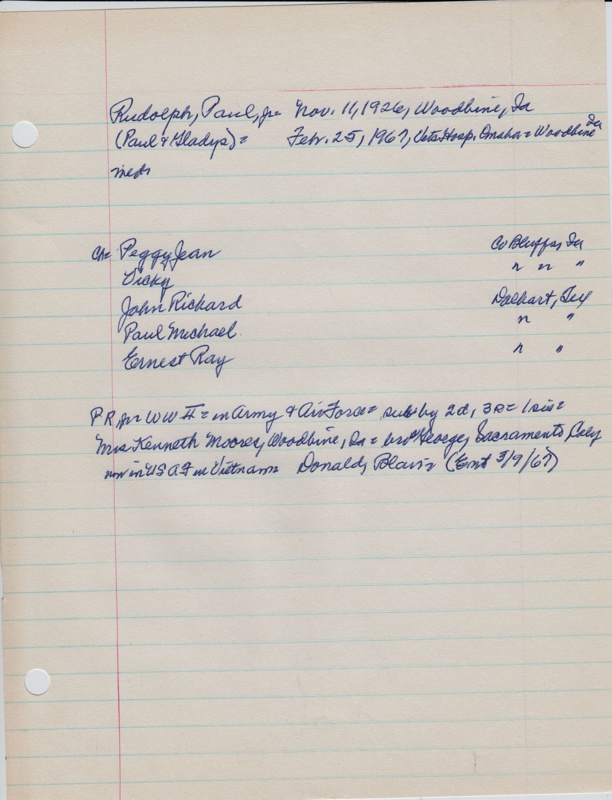 Rudolph, Paul, Jr= Nov. 11, 1926, Woodbine, Ia
(Paul & Gladys)= Febr. 25, 1967, Vets Hosp. Omaha= Woodbine Ia
med=
Ch= Peggy Jean Co Bluffs, Ia
Vicky " " "
John Richard Dalhart, Tex
Paul Michael " "
Ernest Ray " "
P R Jr= WW II= in Army & Air Force= sub by 2d, 3s= 1 sis=
Mrs Kenneth Moores, Woodbine, Ia= bro= George, Sacramento, Calif
now in USAF in Vietnam Donald, Blair= (Ent 3/9/67)